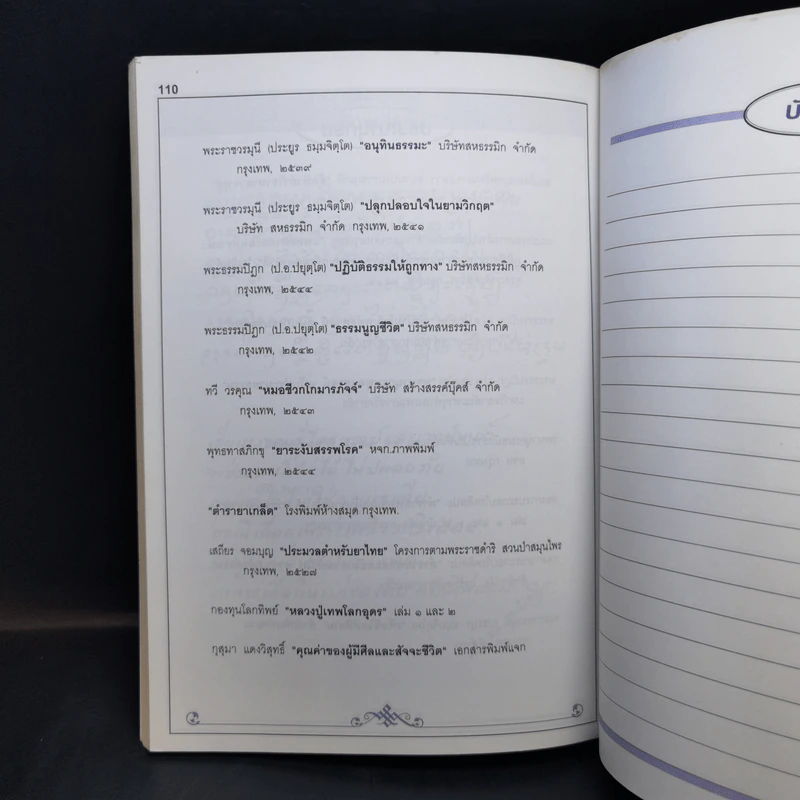 110
พระราชวรมุนี (ประยูร ธมฺมจิตฺโต) "อนุทินธรรมะ" บริษัทสหธรรมิก จำกัด
กรุงเทพ, ๒๕๓๙
พระราชวรมุนี (ประยูร ธมฺมจิตฺโต) "ปลุกปลอบใจในยามวิกฤต"
บริษัท สหธรรมิก จำกัด กรุงเทพ, ๒๕๔๑
พระธรรมปิฎก (ป.อ.ปยุตฺโต) "ปฏิบัติธรรมให้ถูกทาง" บริษัทสหธรรมิก จำกัด
กรุงเทพ, ๒๕๔๔
พระธรรมปิฎก (ป.อ.ปยุตฺโต) "ธรรมนูญชีวิต" บริษัทสหธรรมิก จำกัด
กรุงเทพ, ๒๕๔๒
ทวี วรคุณ "หมอชีวกโกมารภัจจ์" บริษัท สร้างสรรค์บุ๊คส์ จำกัด
กรุงเทพ, ๒๕๔๓
พุทธทาสภิกขุ "ยาระงับสรรพโรค" หจก.ภาพพิมพ์
กรุงเทพ, ๒๕๔๔
"ตำรายาเกล็ด" โรงพิมพ์ห้างสมุด กรุงเทพ.
เสถียร จอมบุญ "ประมวลตำหรับยาไทย" โครงการตามพระราชดำริ สวนป่าสมุนไพร
กรุงเทพ, ๒๕๒๗
กองทุนโลกทิพย์ "หลวงปู่เทพโลกอุดร" เล่ม ๑ และ ๒
กุสุมา แดงวิสุทธิ์ "คุณค่าของผู้มีศีลและสัจจะชีวิต" เอกสารพิมพ์แจก